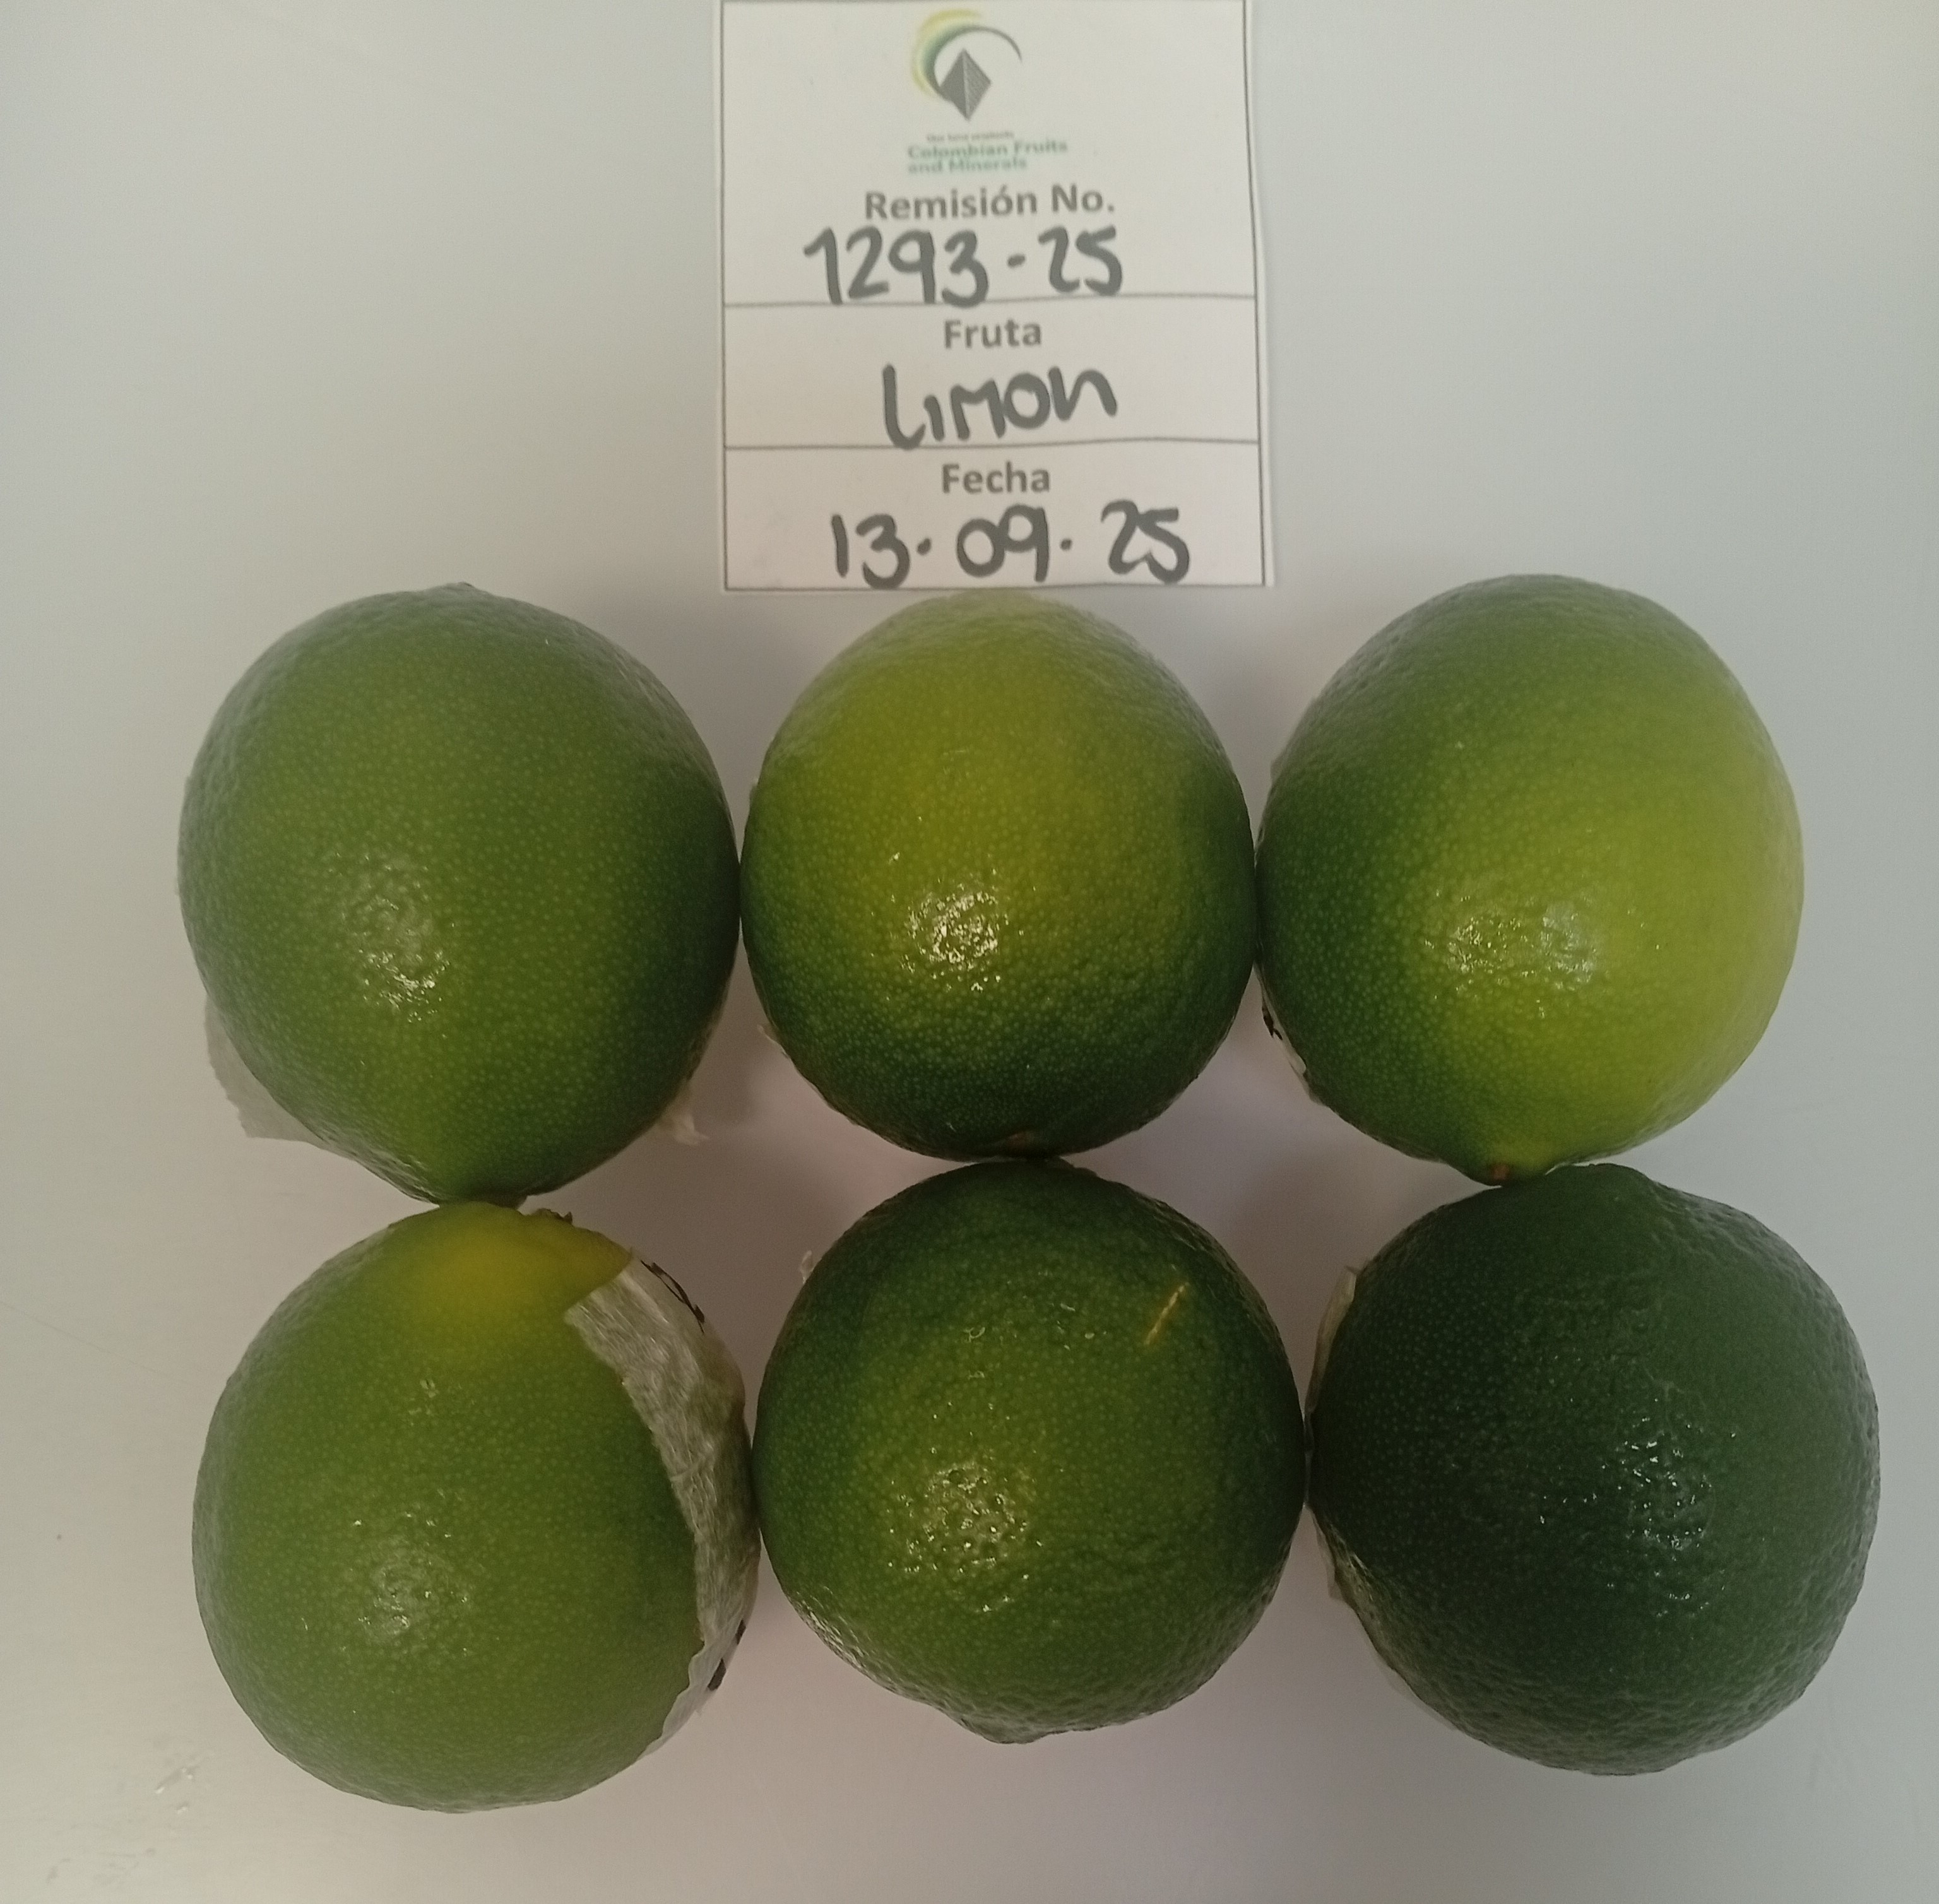 Colombian Fruits
and Minerals
Remisión No.
1293-25
Fruta
Limon
Fecha
13.09.25